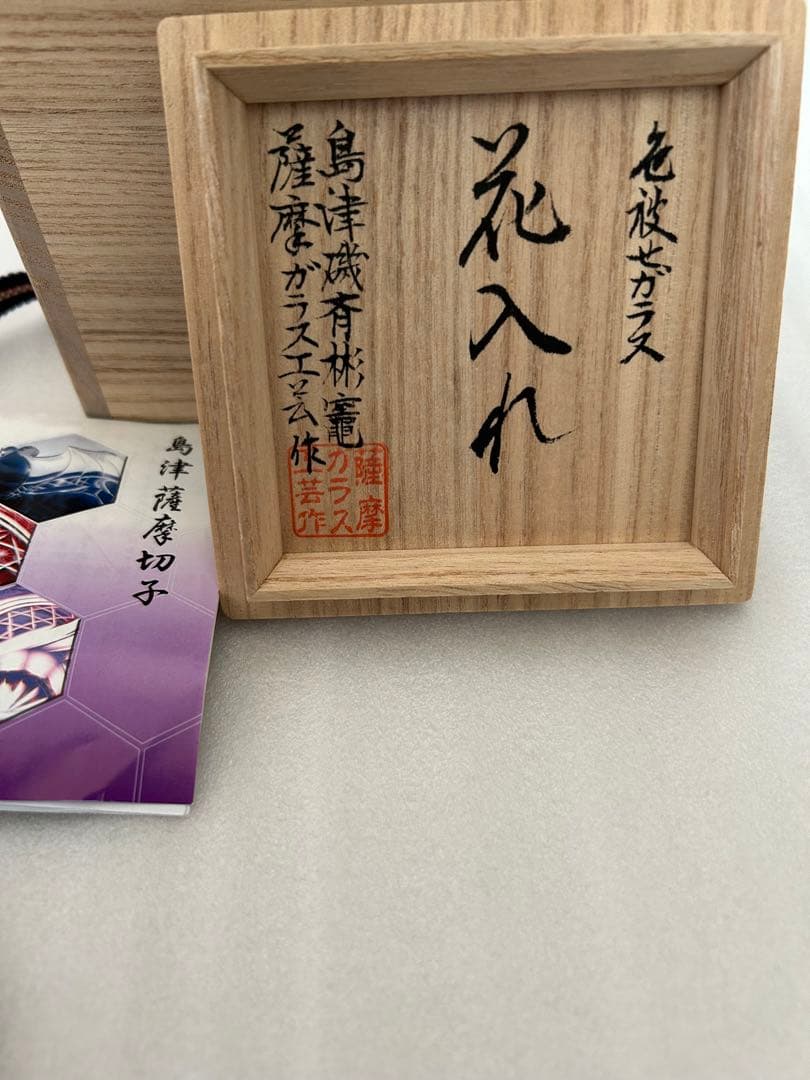 色被せガラス
花入れ
島津磯斉彬竈
薩摩ガラス工芸作
薩摩
ガラス
工芸作
島津薩摩切子